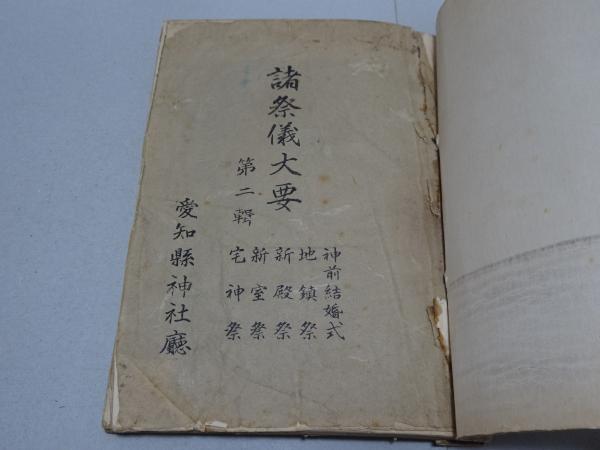 諸祭儀大要
第二輯
神前結婚式
地鎮祭
新殿祭
新室祭
宅神祭
愛知縣神社廳